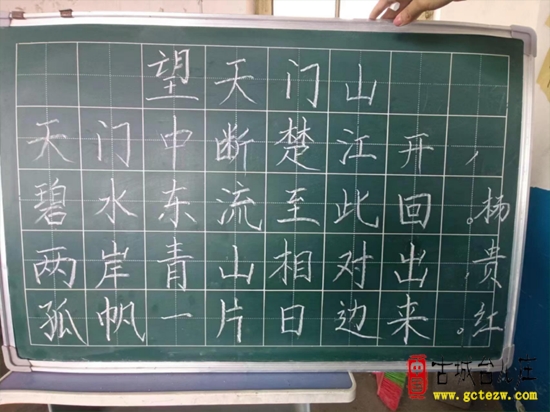 望天门山
天门中断楚江开，
碧水东流至此回。
两岸青山相对出，
孤帆一片日边来。
杨贵红
古城台儿庄
www.gctezw.com